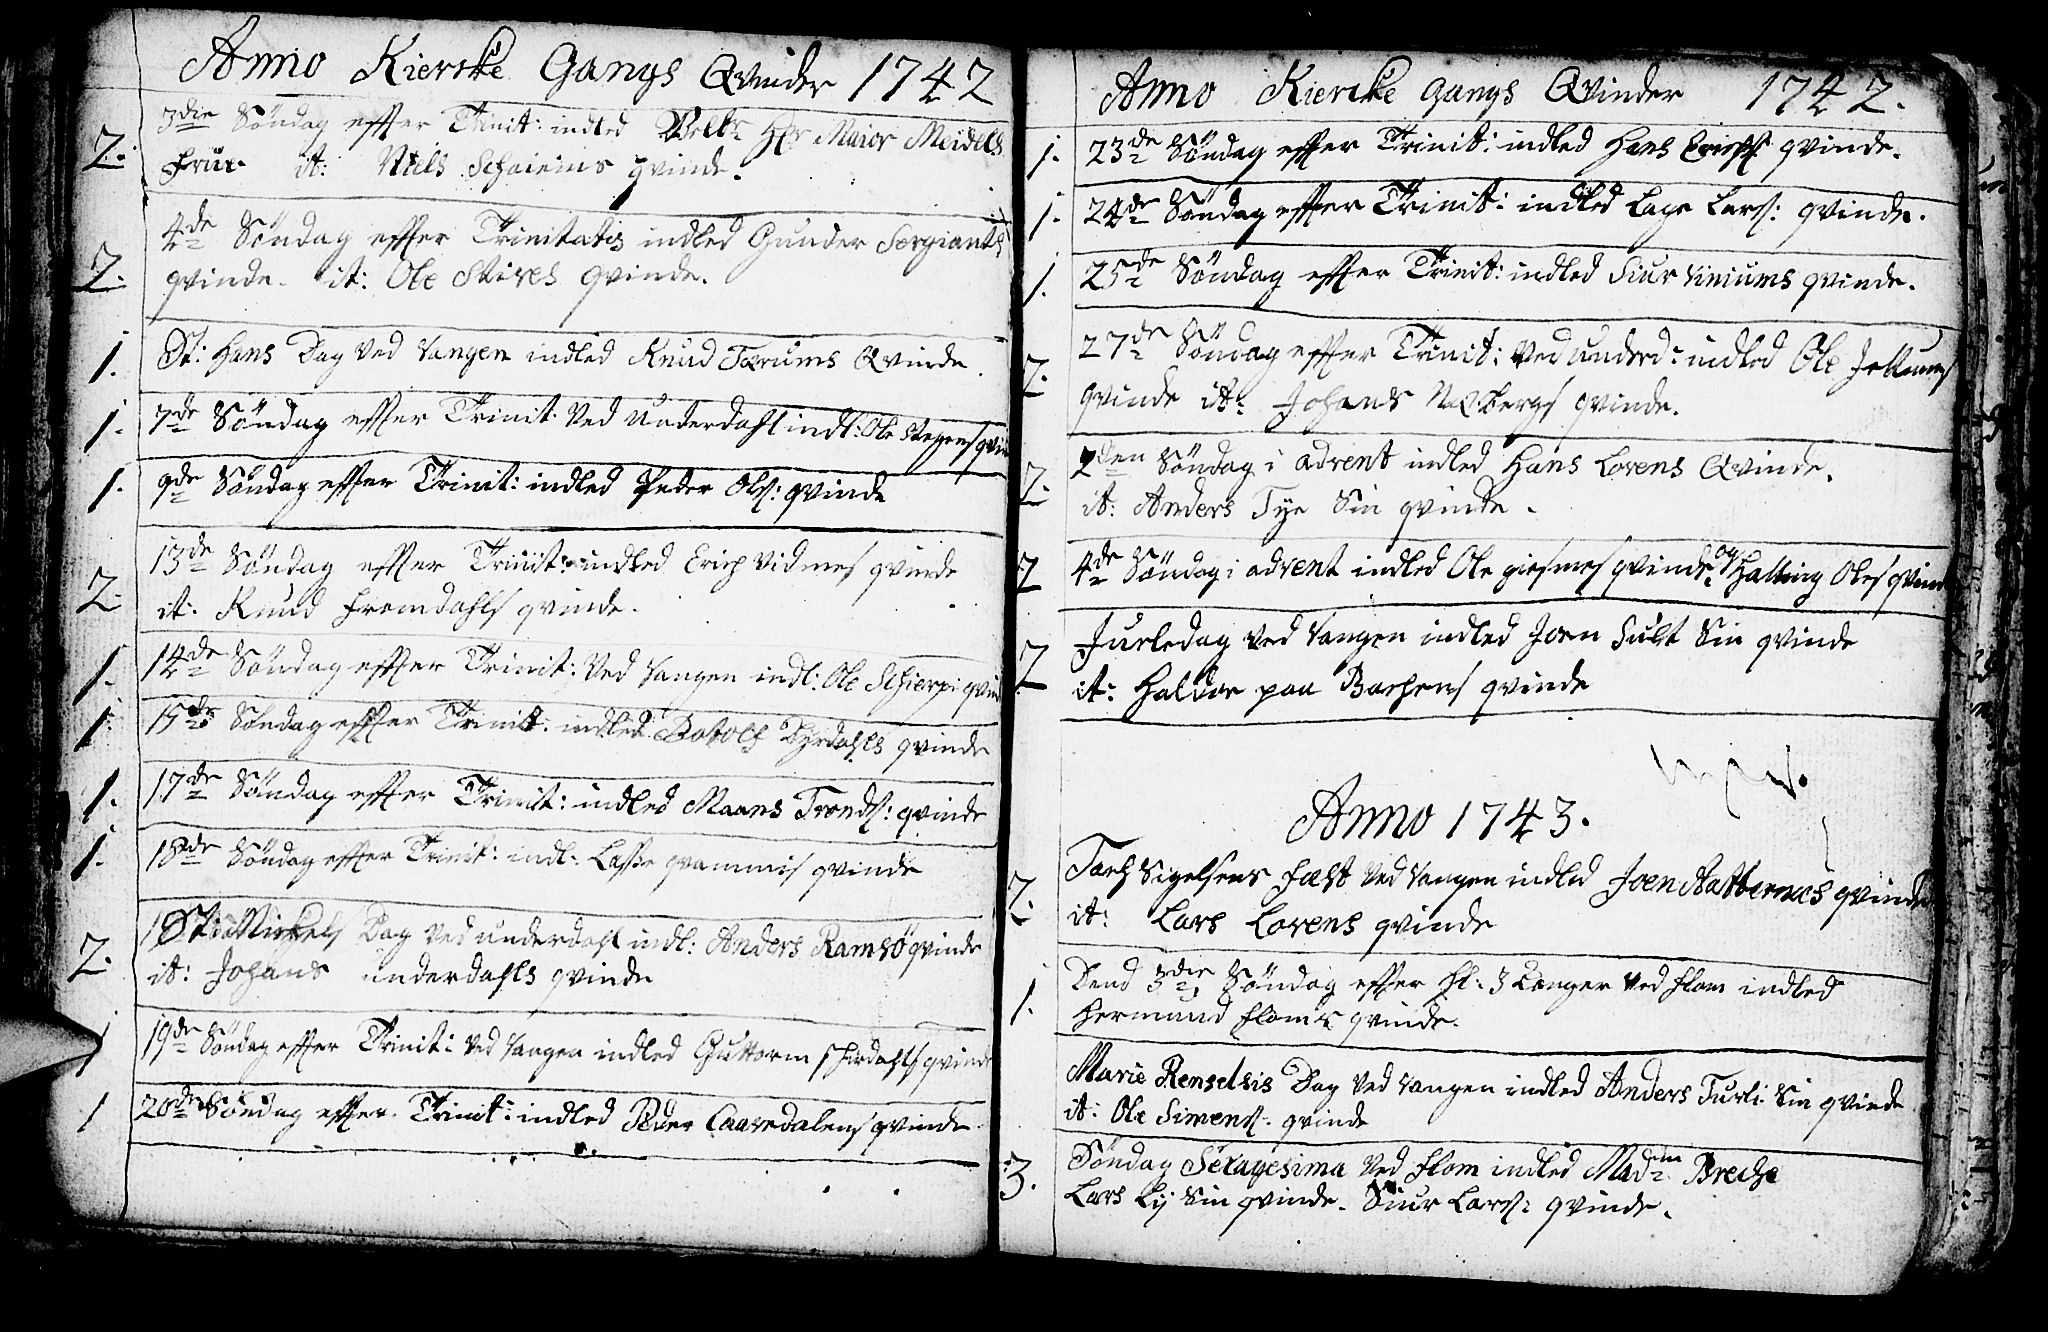 Anno Kiercke Gangs Qvinder 1742
2. 3die Søndag effter Trinit: indled Velbr. Hr Maior Meidels
Frue. it: Niels qvinde.
2. 4de Søndag effter Trinitatis indled Gunder Sergiants
qvinde. it: Ole Skires qvinde.
1. St: Hans Dag ved Vangen indled Knud Tærums Qvinde.
1. 7de Søndag effter Trinit. Ved Underdahl indl: Ole Stegens qvin
1. 9de Søndag effter Trinit: indled Peder Ols: qvinde
2. 13de Søndag effter Trinit: indled Erich Vidmes qvinde
it: Knud Fremdahls qvinde.
1. 14de Søndag effter Trinit: Ved Vangen indl: Ole Schierpi qvin
1. 15de Søndag effter Trinit: indled Botolf Dyrdahls qvinde
1. 17de Søndag effter Trinit: indled Maans Tronds: qvinde
1. 18de Søndag effter Trinit: indl: Lasse qvammis qvinde
2. St: Mickels Dag Ved underdahl indl: Anders Ramsø qvinde
it: Johans underdahls qvinde
1 19de Søndag effter Trinit: Ved Vangen indled Guttorm qvinde
1 20de Søndag effter Trinit: indled Peder Caaredalens qvinde.
Anno Kiercke Gangs Qvinder 1742.
1. 23de Søndag effter Trinit: indled Hans Erichs: qvinde.
1. 24de Søndag effter Trinit: indled Lage Lars: qvinde.
1. 25de Søndag effter Trinit: indled Siur Viniums qvinde.
2. 27de Søndag effter Trinit: Ved underd: indled Ole
qvinde it: Johans qvinde.
2. 2den Søndag i advent indled Hans Lorens Qvinde.
it: Anders Tye Sin qvinde.
2 4de Søndag i advent indled Ole giesmes qvinde. og Halling Oles qvinde
2 Juuledag Ved Vangen indled Joen Sult Sin qvinde
it: Haldor paa Backens qvinde
Anno 1743.
2. Fæst Ved Vangen indled Joen qvinde
it: Lars Lorens qvinde
1. Dend 3die Søndag effter Hl: 3 Konger Ved Flom indled
Hermand Floms qvinde.
Marie Renselsis Dag Ved Vangen indled Anders Turli Sin qvinde
it: Ole Simens: qvinde
3. Søndag Sexagesima Ved Flom indled Madm
Lars Ly Sin qvinde. Siur Lars: qvinde.